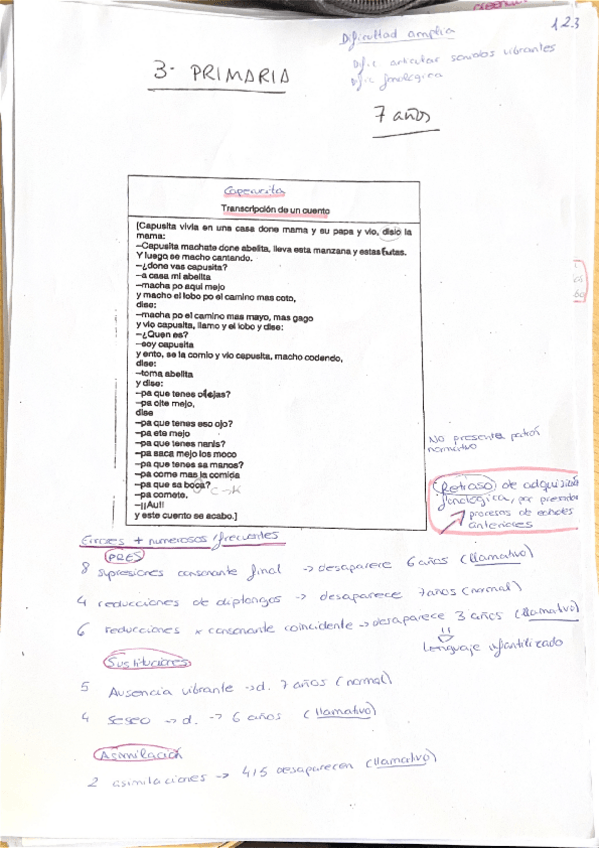 123
Dificultad amplia
Dific articular sonidos vibrantes
Dific fonológica
3º PRIMARIA
7 años
Caperucita
Transcripción de un cuento
[Capusita vivia en una casa done mama y su papa y vio, disio la
mama:
–Capusita machate done abelita, lleva esta manzana y estas futas.
Y luego se macho cantando.
–¿done vas capusita?
–a casa mi abelita
–macha po aqui mejo
y macho el lobo po el camino mas coto,
dise:
–macha po el camino mas mayo, mas gago
y vio capusita, llamo y el lobo y dise:
–¿Quen es?
–soy capusita
y ento, se la comio y vio capusita, macho codendo,
dise:
–toma abelita
y dise:
–pa que tenes olejas?
–pa oite mejo,
dise
–pa que tenes eso ojo?
–pa ete mejo
–pa que tenes naris?
–pa saca mejo los moco
–pa que tenes sa manos?
–pa come mas la comida
–pa que sa boca?
C→K
–pa comete.
–¡¡Au!!
y este cuento se acabo.]
No presenta patrón
normativo
Retraso de adquisición
fonológica, por presentar
procesos de edades
anteriores
Errores + numerosos/frecuentes
8 supresiones consonante final → desaparece 6 años (llamativo)
4 reducciones de diptongos → desaparece 7 años (normal)
6 reducciones x consonante coincidente → desaparece 3 años (llamativo)
Lenguaje infantilizado
Sustituciones
5 Ausencia vibrante → d. 7 años (normal)
4 Seseo → d. → 6 años (llamativo)
Asimilación
2 asimilaciones → 4/5 desaparecen (llamativo)